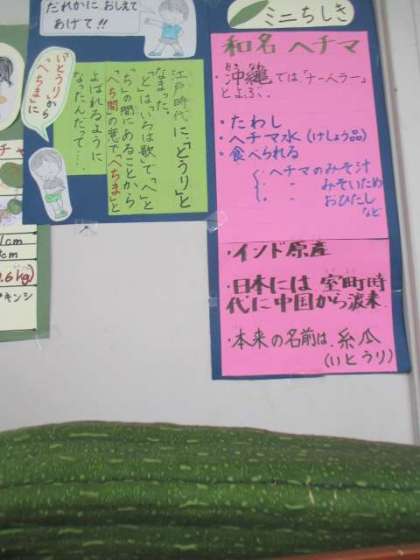 だれかに おしえて
あげて!!
「いとうり」から
「へちま」に
江戸時代に、「とうり」と
なまった。
「と」は、いろは歌で「へ」と
「ち」の間にあることから
「へち間」の意で「へちま」と
よばれるように
なったんだって…。
ミニちしき
和名 ヘチマ
・沖縄では「ナーベラー」
とよぶ。
・たわし
・ヘチマ水 (けしょう品)
・食べられる
ヘチマのみそ汁
〃 みそいため
〃 おひたし
など
・インド原産
・日本には 室町時
代に中国から渡来
・本来の名前は、糸瓜
(いとうり)
チャ
cm
cm
.6kg)
キンシ